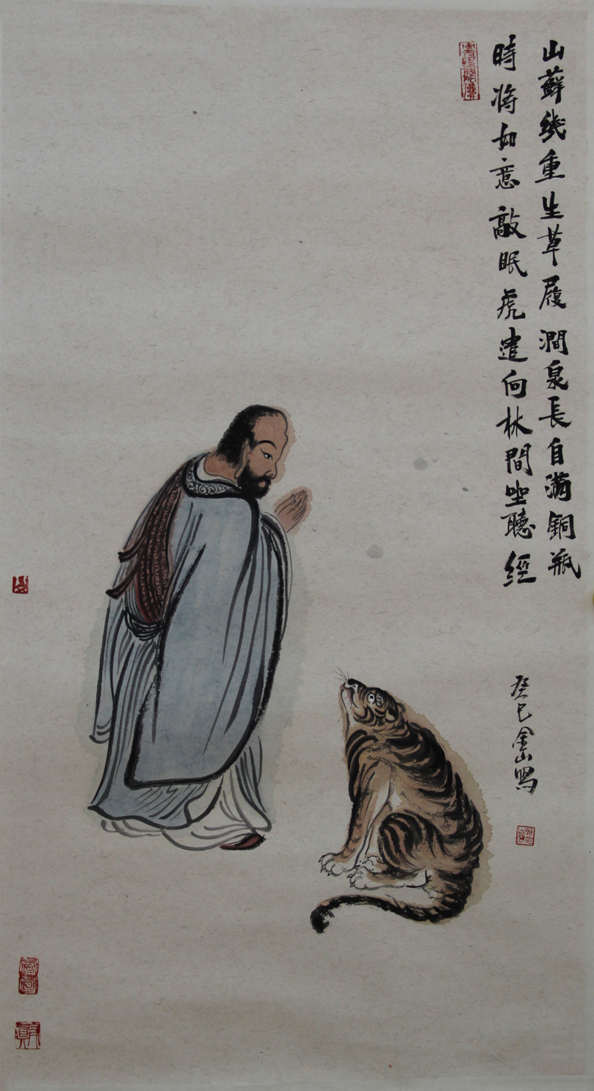 山蘚幾重生草履澗泉長自滿銅瓶
時将如意敲眠虎遣向林間坐聽經
癸巳金山寫